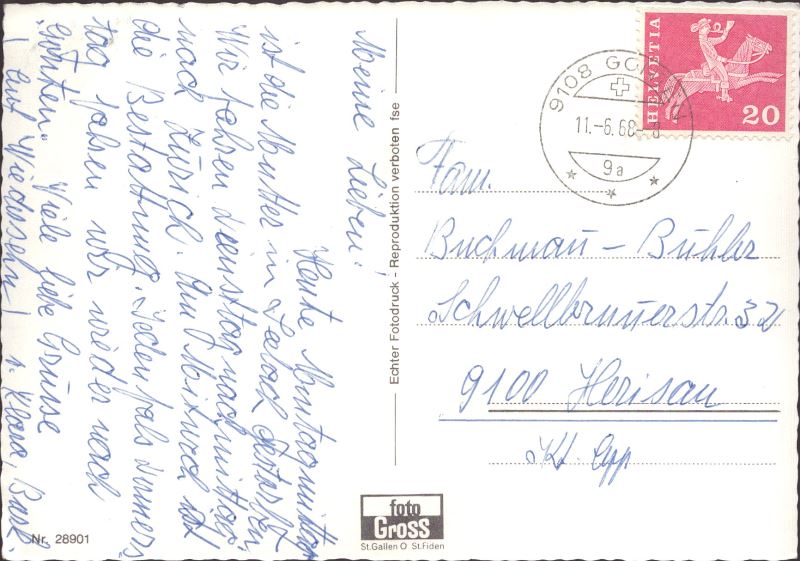 Meine Lieben!
Heute Montagmittag
ist die Mutter in gestorben.
Wir fahren Dienstag nachmittag
nach Zürich. Am Mittwoch ist
die Bestattung. Jedenfals Donners
tag fahren wir wieder nach
"Gonten". Viele liebe Grüsse
auf Wiedersehn! Klara, Basel.
Echter Fotodruck - Reproduktion verboten fse
Nr. 28901
foto
Gross
St.Gallen O St.Fiden
HELVETIA
20
9108 GONTEN
11.-6.68.-8
9a
Fam.
Buchmann - Bühler
Schwellbrunnerstr. 32
9100 Herisau
Kt. App